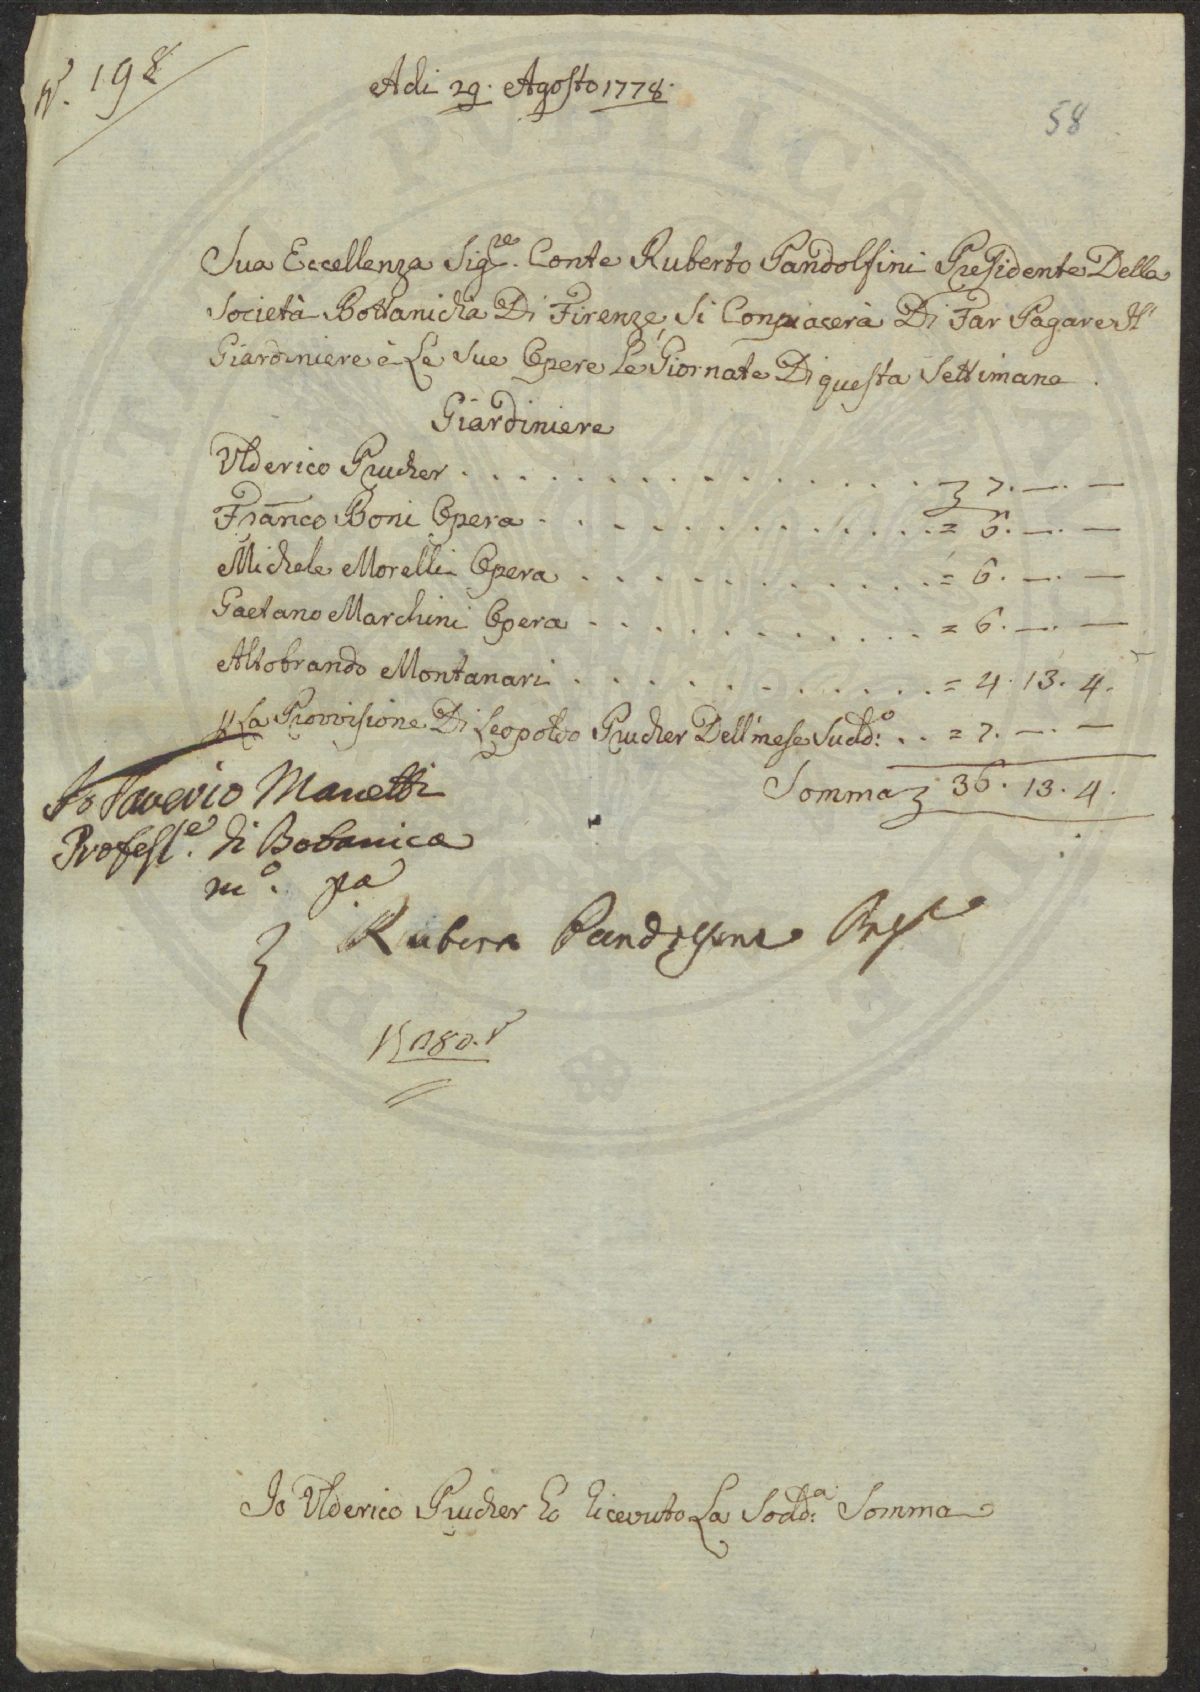 N. 198
Adi 29. Agosto 1778.
58
Sua Eccellenza Sig.re Conte Ruberto Pandolfini Presidente Della
Società Bottanicha Di Firenze, Si Conpiacerà Di Far Pagare Il
Giardiniere è Le Sue Opere Le Giornate Di questa Settimana.
Giardiniere
Ulderico Prucher . . . . . 7. —. —
Franco Boni Opera . . . . . = 6. —. —
Michele Morelli Opera . . . . . = 6. —. —
Gaetano Marchini Opera . . . . . = 6. —. —
Altobrando Montanari . . . . . = 4. 13. 4.
La Provvisione Di Leopoldo Prucher Dell mese Sudd:o . . = 7. —. —
Somma 36. 13. 4.
Io Saverio Manetti
Profess.e di Botanica
m.o pa
Ruberto Pandolfini Pres.e
Io Ulderico Prucher ho ricevuto La Sodd:a Somma